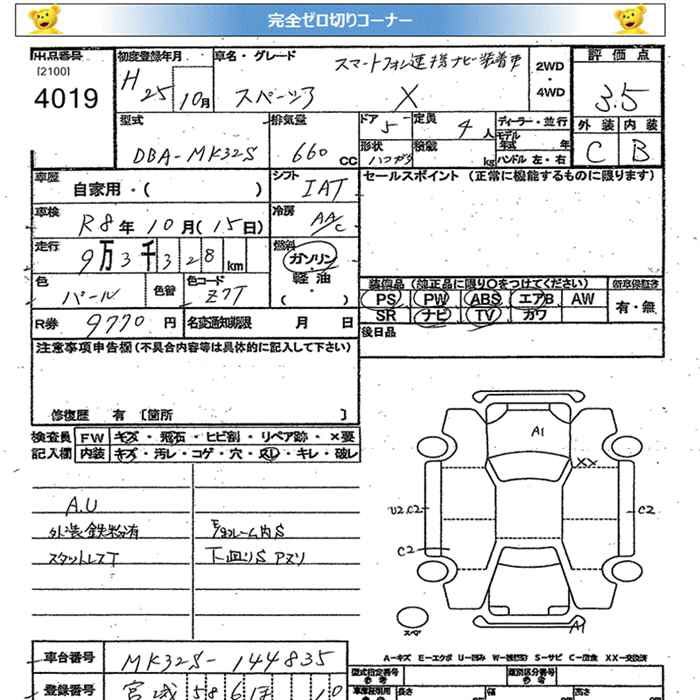 完全ゼロ切りコーナー
出品番号
[2100]
4019
初度登録年月
H25 10月
車名・グレード
スマートフォン連携ナビ装着車
スペーシア X
2WD
・
4WD
評価点
3.5
型式
DBA-MK32S
排気量
660 CC
ドア 5
定員 4人
形状
積載 kg
ディーラー・並行
モデル
年式 年
ハンドル 左・右
外装 内装
C B
車歴
自家用・( )
シフト
IAT
セールスポイント (正常に機能するものに限ります)
車検
R8年10月(15日)
冷房
AAC
走行
9万3千328km
燃料
ガソリン
・
軽油
( )
色
パール
色替
色コード
Z7T
装備品 (純正品に限り○をつけてください)
PS PW ABS エアB AW
SR ナビ TV カワ
新車保証書
有・無
R券 9770円
名変通知期限 月 日
後日品
注意事項申告欄 (不具合内容等は具体的に記入して下さい)
修復歴 有 [箇所 ]
検査員
記入欄
FW キズ・飛石・ヒビ割・リペア跡・×要
内装 キズ・汚レ・コゲ・穴・スレ・キレ・破レ
A.U
外装鉄粉有
スタットレスT
下廻りS Pズリ
A1
XX
U2.C2
C2
C2
A1
スペア
A-キズ E-エクボ U-凹み W-補修跡 S-サビ C-腐食 XX-交換済
車台番号 MK32S-144835
登録番号 宮城 58
型式指定番号
参考
類別区分番号
参考
長さ 幅 高さ